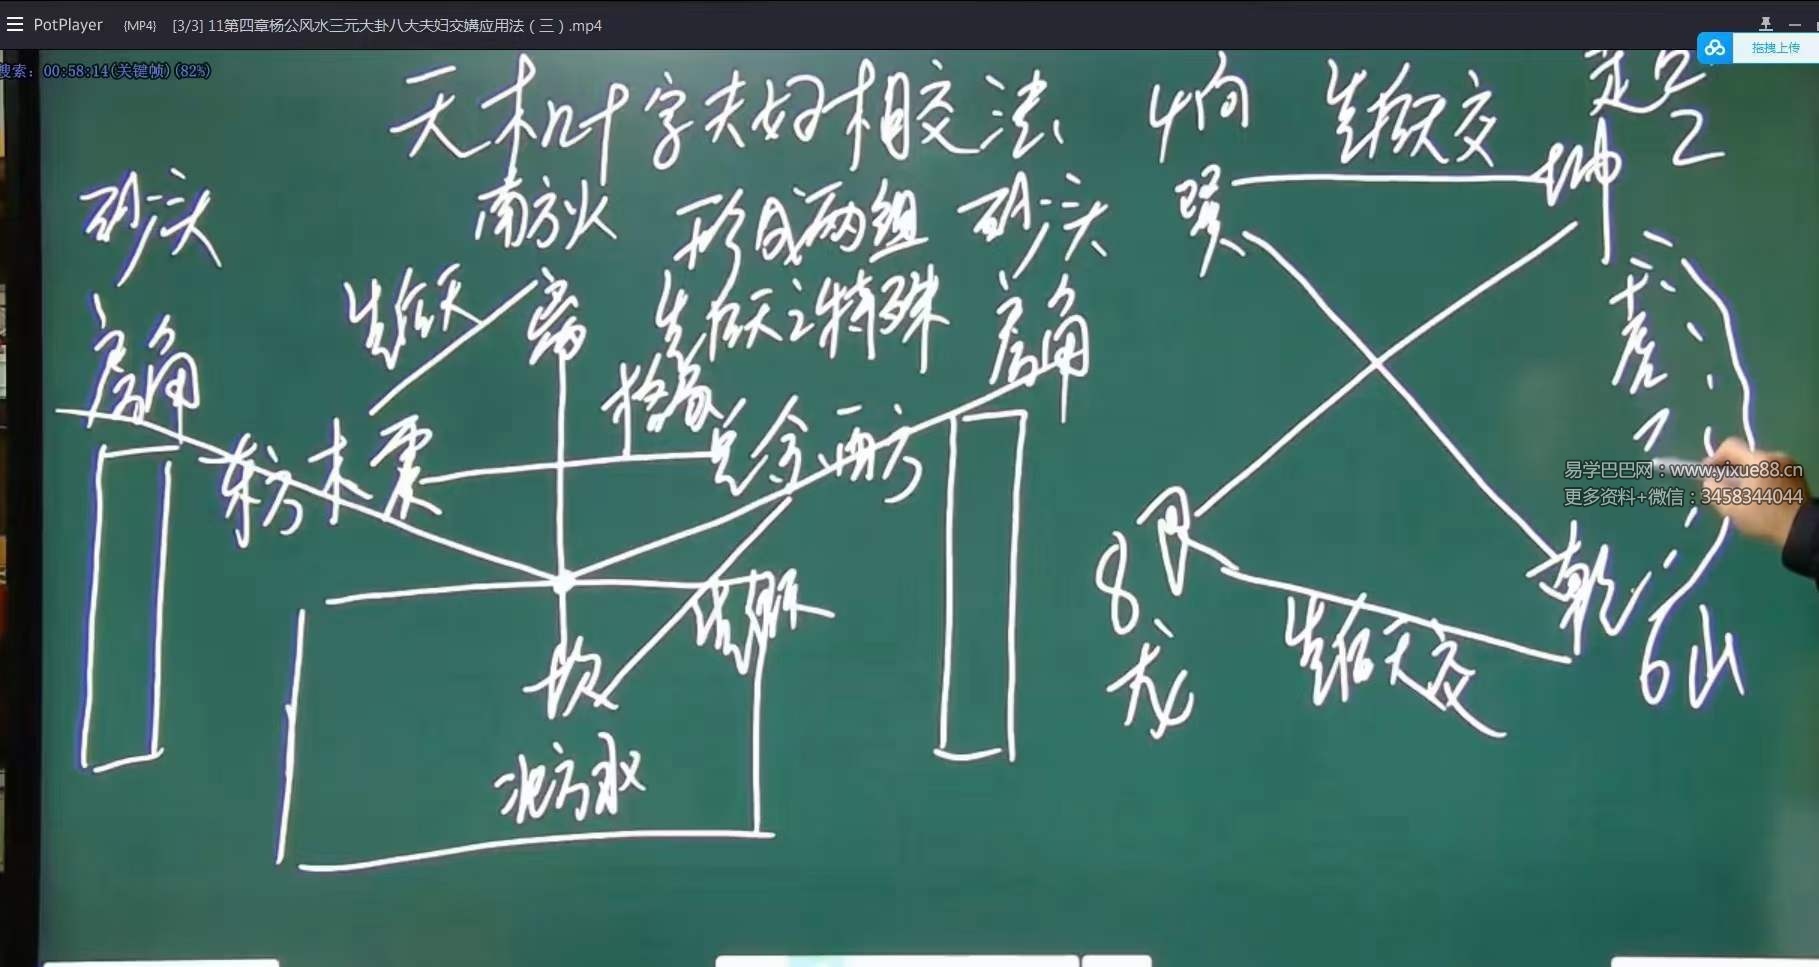 PotPlayer {MP4} [3/3] 11第四章杨公风水三元大卦八大夫妇交媾应用法（三）.mp4
拖拽上传
搜索：00:58:14(关键帧)(82%)
天木几十字夫妇相交法
4向
先后天交
巽
坤
2
砂头
南方火
形成两组
砂头
先后天
离
先后天之特殊
房角
格象
房角
东方木震
兑金西方
易学巴巴网：www.yixue88.cn
更多资料+微信：3458344044
8
艮
龙
乾
6山
先后天交
坎
北方水